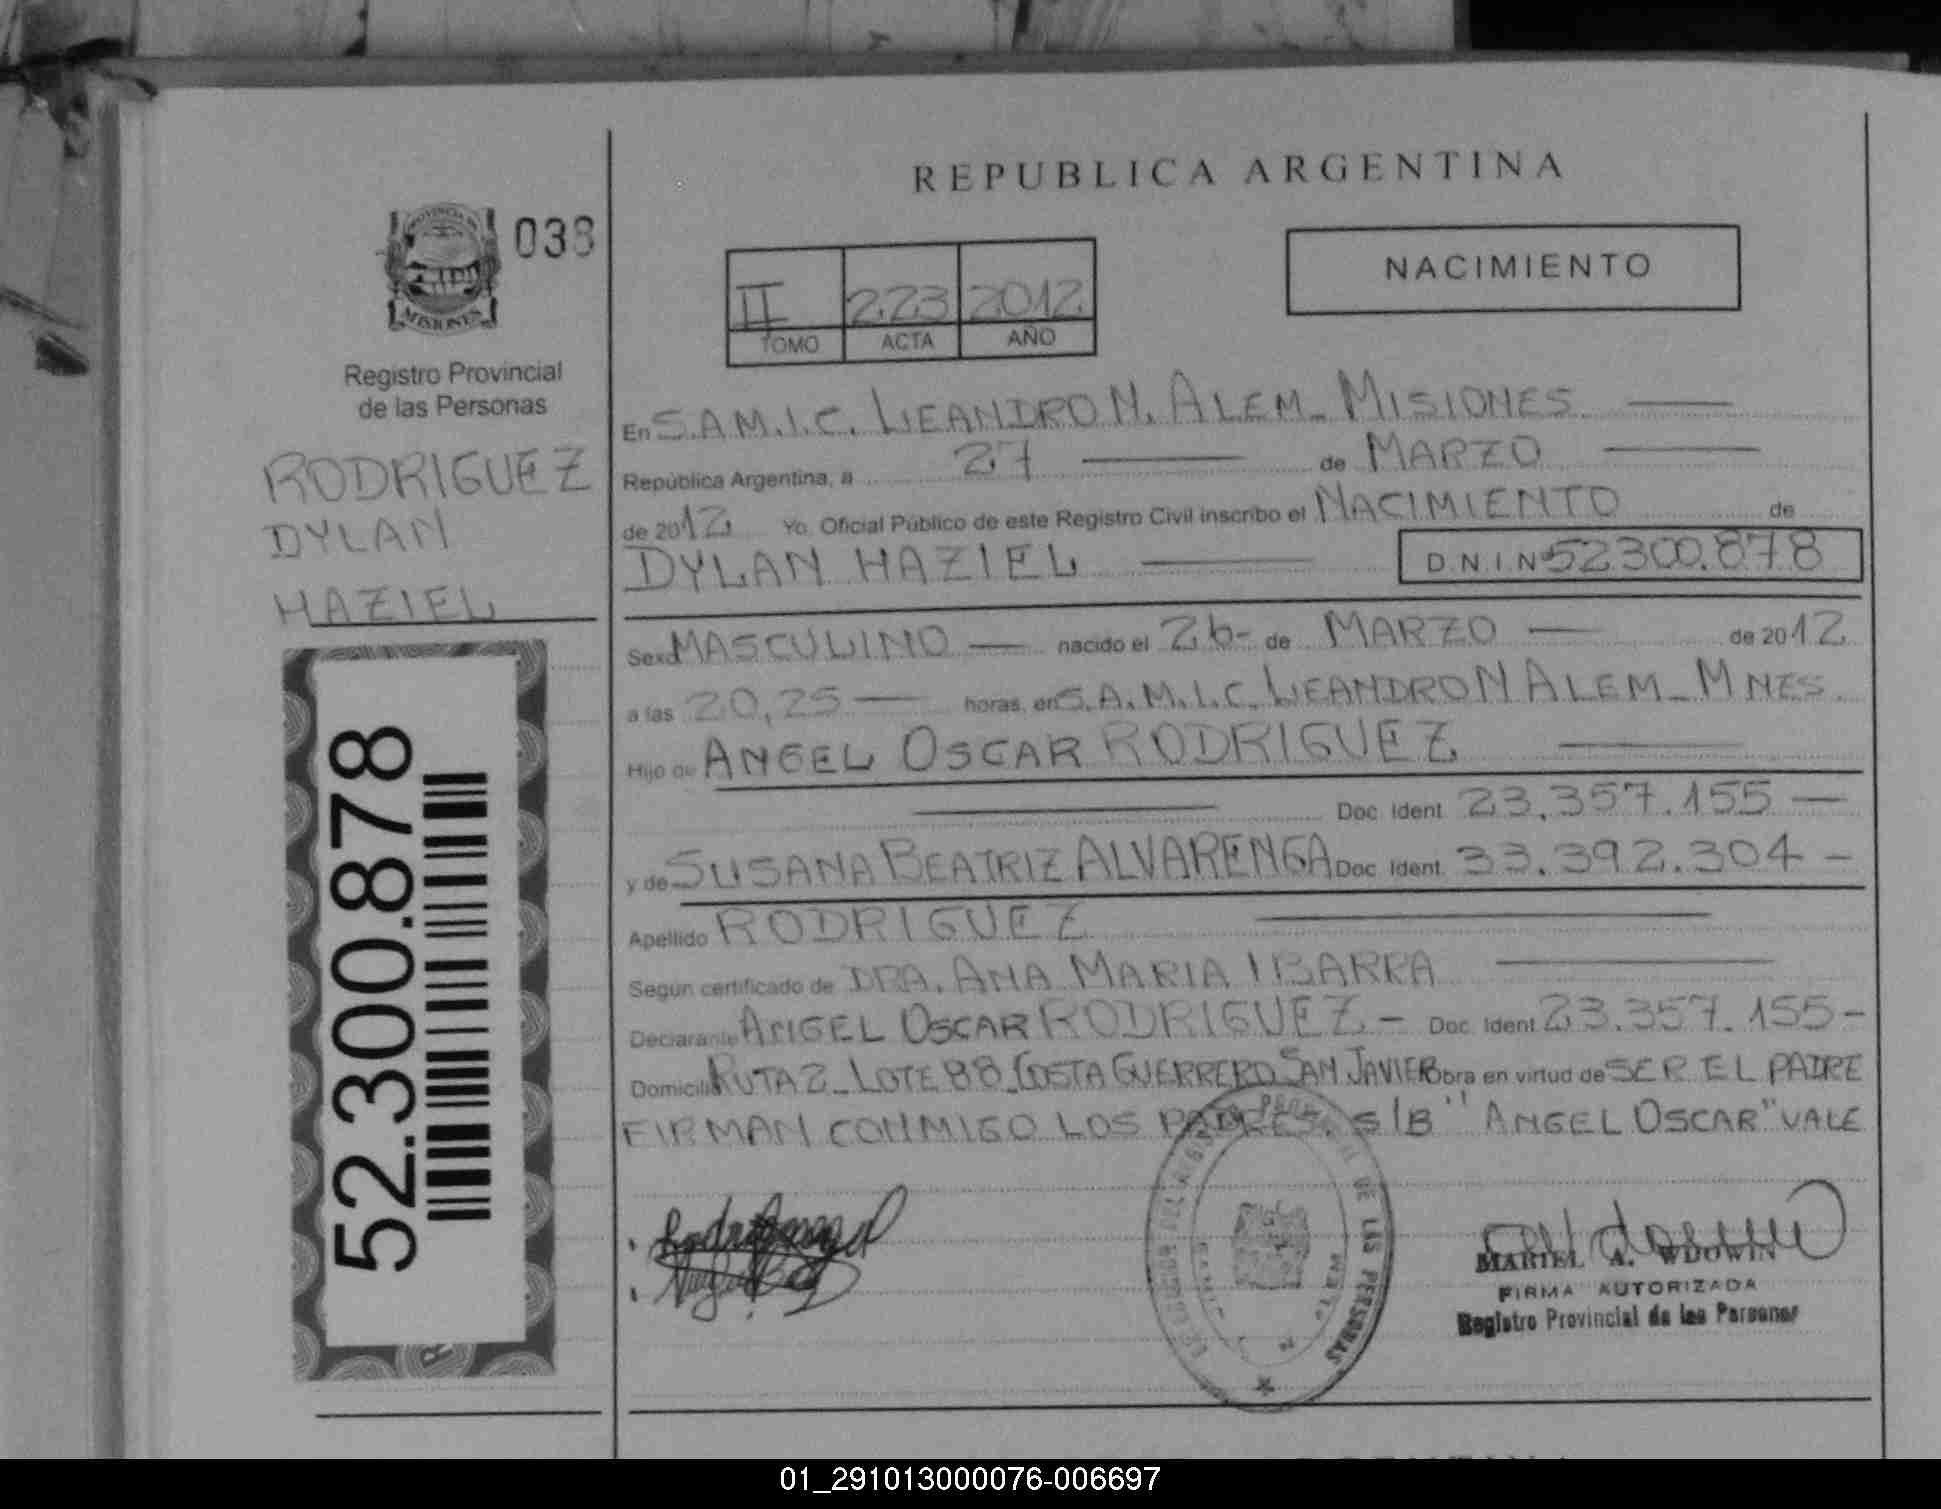 REPUBLICA ARGENTINA
PROVINCIA DE
MISIONES
038
Registro Provincial
de las Personas
RODRIGUEZ
DYLAN
HAZIEL
52.300.878
II 223 2012
TOMO ACTA AÑO
NACIMIENTO
En S.A.M.I.C. LEANDRO N. ALEM_ MISIONES
República Argentina, a 27 de MARZO
de 2012 Yo, Oficial Público de este Registro Civil inscribo el NACIMIENTO de
DYLAN HAZIEL D.N.I.Nº52300.878
Sexo MASCULINO — nacido el 26- de MARZO — de 2012
a las 20,25 — horas, en S.A.M.I.C. LEANDRO N ALEM_MNES.
Hijo de ANGEL OSCAR RODRIGUEZ
Doc Ident 23.357.155 —
y de SUSANA BEATRIZ ALVARENGA Doc Ident. 33.392.304 -
Apellido RODRIGUEZ
Según certificado de DRA. ANA MARIA IBARRA
Declarante ANGEL OSCAR RODRIGUEZ - Doc Ident 23.357.155-
Domicilio RUTA 2_LOTE 88_COSTA GUERRERO SAN JAVIER obra en virtud de SER EL PADRE
FIRMAN CONMIGO LOS PADRES. S/B "ANGEL OSCAR" VALE
DE LAS PERSONAS
MARIEL A. WDOWIN
FIRMA AUTORIZADA
Registro Provincial de las Personas
01_291013000076-006697